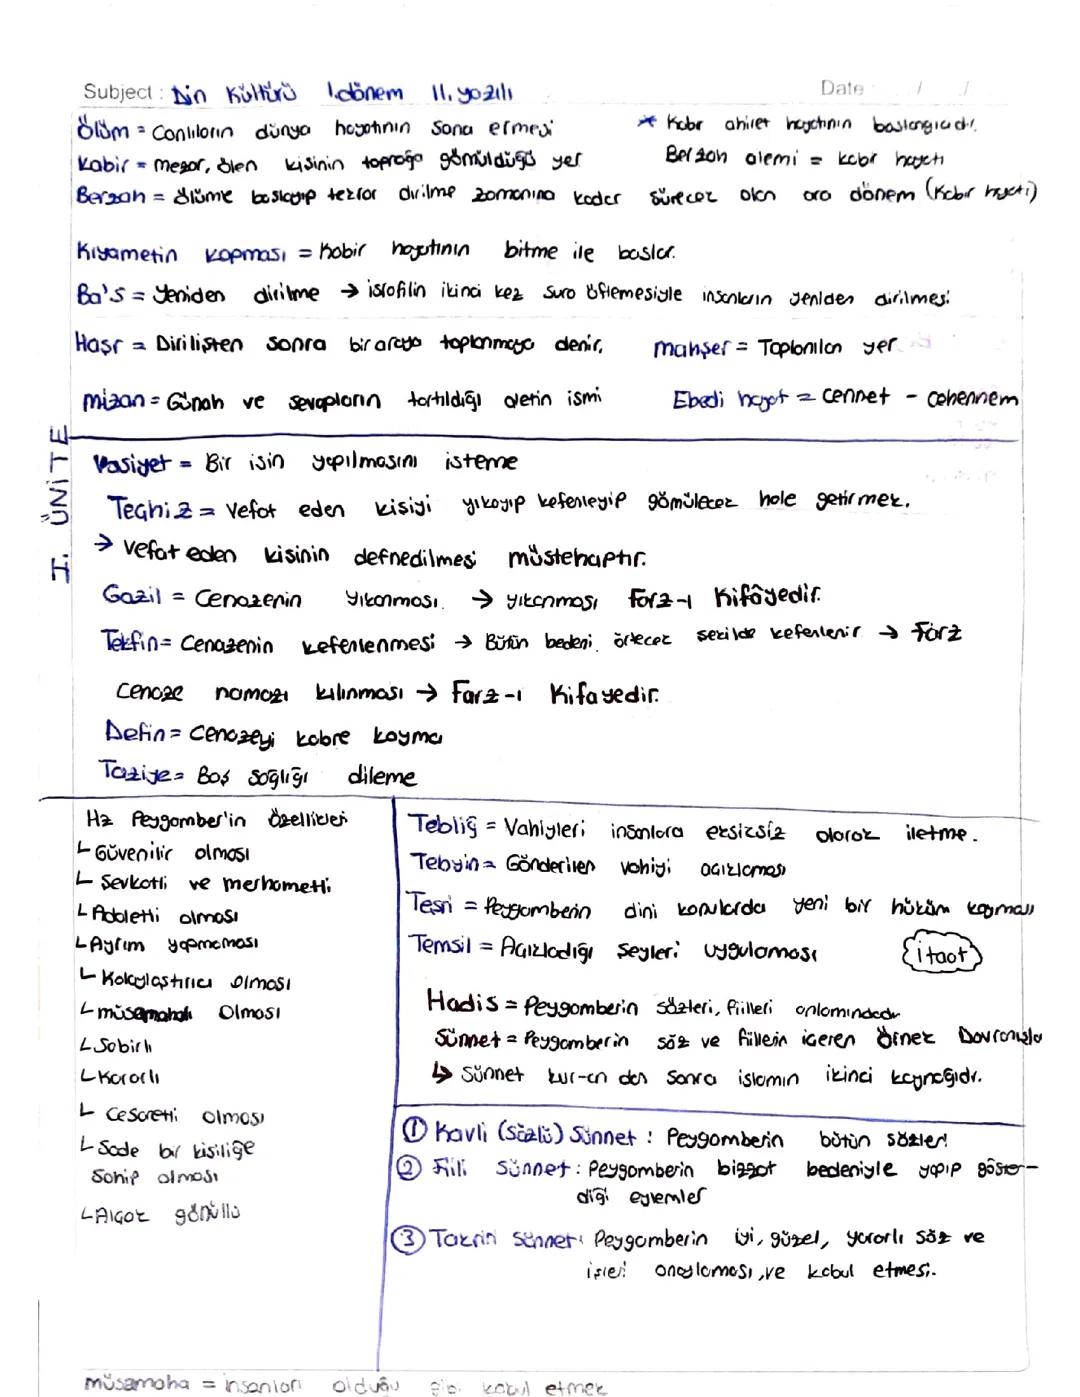 Subject : Din Kültürü 1.dönem 11. yazılı Date : / /
Ölüm = Canlıların dünya hayatının sona ermesi * Kabir ahiret hayatının baslangıcıdır.
Kabir = mezar, ölen kisinin toprağa gömüldüğü yer Berzah alemi = kabir hayatı
Berzah = ölüme baslayıp tekrar dirilme zamanına kadar sürecek olan ara dönem (Kabir hayatı)
Kıyametin kopması = Kabir hayatının bitme ile baslar.
Ba's = Yeniden dirilme → israfilin ikinci kez sura üflemesiyle insanların yeniden dirilmesi
Haşr = Dirilişten sonra bir araya toplanmaya denir. mahşer = Toplanılan yer
mizan = Günah ve sevapların tartıldığı aletin ismi Ebedi hayat = cennet - cehennem
I. ÜNİTE
Vasiyet = Bir isin yapılmasını isteme
Techiz = Vefat eden kisiyi yıkayıp kefenleyip gömülecek hale getirmek.
→ Vefat eden kisinin defnedilmesi müstehaptır.
Gazil = Cenazenin yıkanması. → yıkanması Farz-ı Kifâyedir.
Tekfin = Cenazenin kefenlenmesi → Bütün bedeni örtecek sekilde kefenlenir → Farz
Cenaze namazı kılınması → Farz-ı Kifayedir.
Defin = Cenazeyi kabre koyma
Taziye = Baş sağlığı dileme
Hz Peygamber'in Özellikleri
└ Güvenilir olması
└ Sevkatli ve merhametli
└ Adaletli olması
└ Ayrım yapmaması
└ Kolaylaştırıcı olması
└ müsamahalı olması
└ Sabırlı
└ Kararlı
└ Cesaretli olması
└ Sade bir kisiliğe
Sahip olması
└ Alçak gönüllü
Tebliğ = Vahiyleri insanlara eksiksiz olarak iletme.
Tebyin = Gönderilen vahiyi acıklaması
Tesri = Peygamberin dini konularda yeni bir hüküm koyması
Temsil = Acıkladığı seyleri uygulaması itaat
Hadis = Peygamberin sözleri, fiilleri anlamındadır
Sünnet = Peygamberin söz ve fiillerin iceren Örnek Davranışla
↳ Sünnet kur-an dan sonra islamın ikinci kaynağıdır.
① Kavli (Sözlü) Sünnet : Peygamberin bütün sözleri
② Fiili Sünnet : Peygamberin bizzat bedeniyle yapıp göster-
diği eylemler
③ Takriri Sünnet : Peygamberin iyi, güzel, yararlı söz ve
işleri onaylaması, ve kabul etmesi.
müsamaha = insanları olduğu gibi kabul etmek